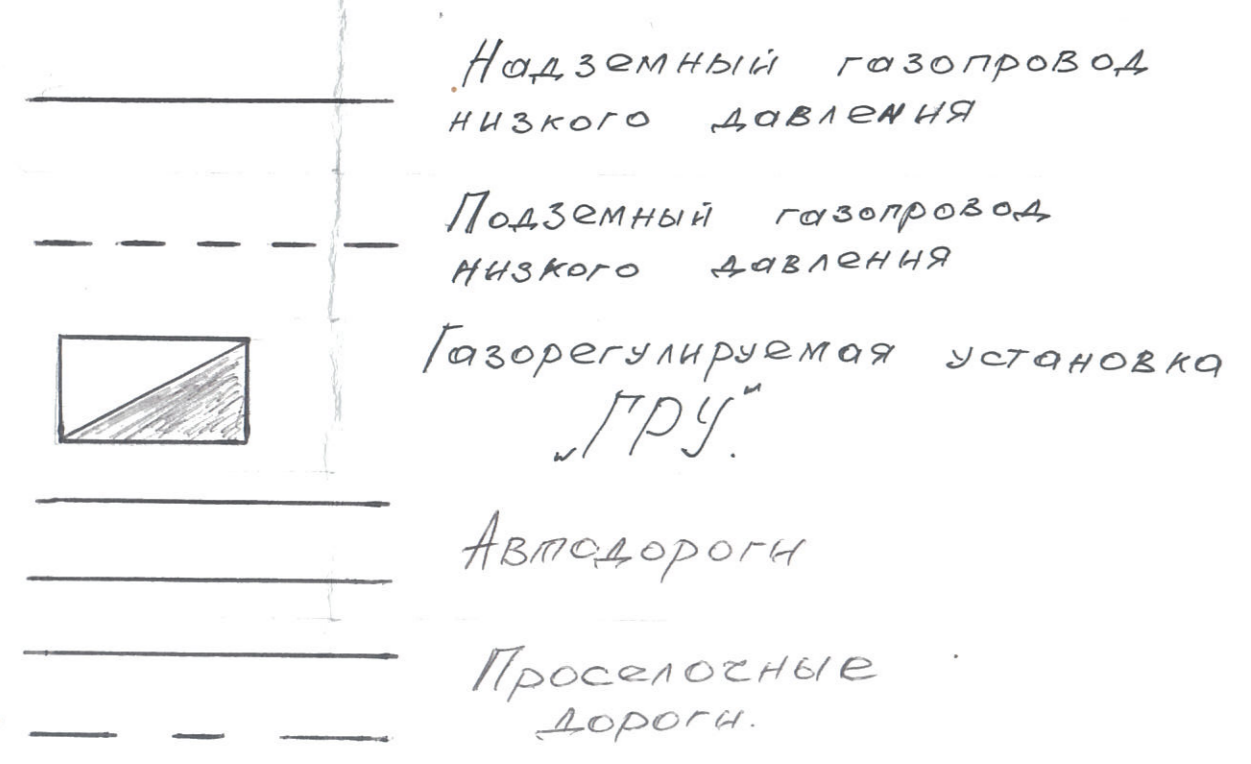 Надземный газопровод
низкого давления
Подземный газопровод
низкого давления
Газорегулируемая установка
„ГРУ".
Автодороги
Проселочные
дороги.